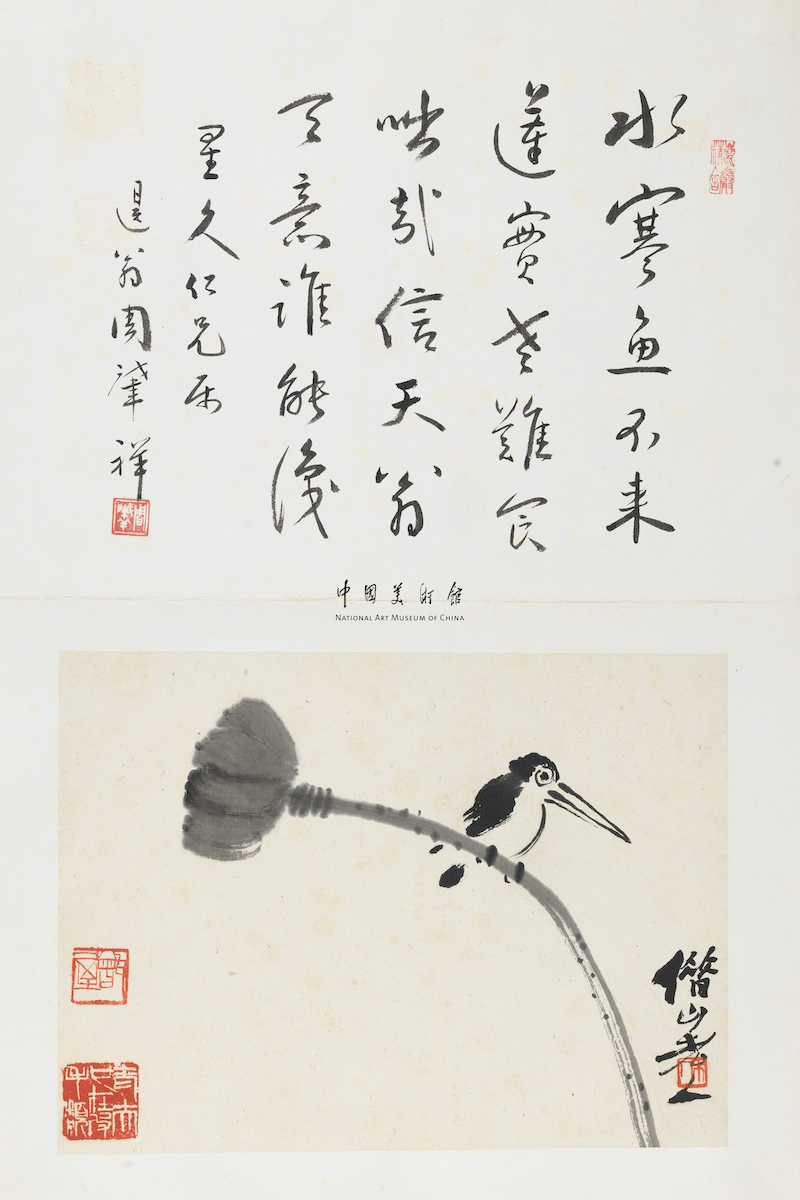 水寒魚不来
蓮實老難食
咄哉信天翁
天意誰能識
星久仁兄属
退翁周肇祥
中国美術館
NATIONAL ART MUSEUM OF CHINA
借山老人